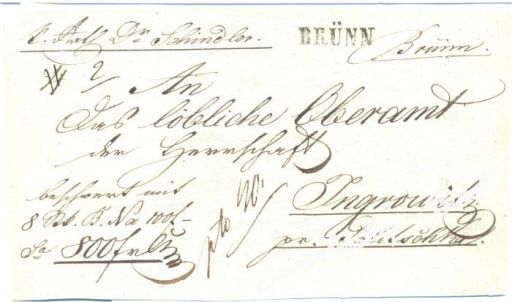 Dr Schindler.
BRÜNN
Brünn.
2/
An
Das löbliche Oberamt
der Herrschaft
beschwert mit
8 Stk. B. No 100f
800f
pto 40
Ingrowitz
pr.